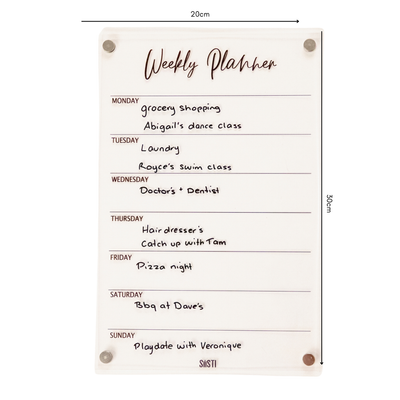 20cm
Weekly Planner
MONDAY
grocery shopping
Abigail's dance class
TUESDAY
Laundry
Royce's swim class
WEDNESDAY
Doctor's + Dentist
THURSDAY
Hairdresser's
Catch up with Tam
FRIDAY
Pizza night
SATURDAY
Bbq at Dave's
SUNDAY
Playdate with Veronique
SIISTI
30cm